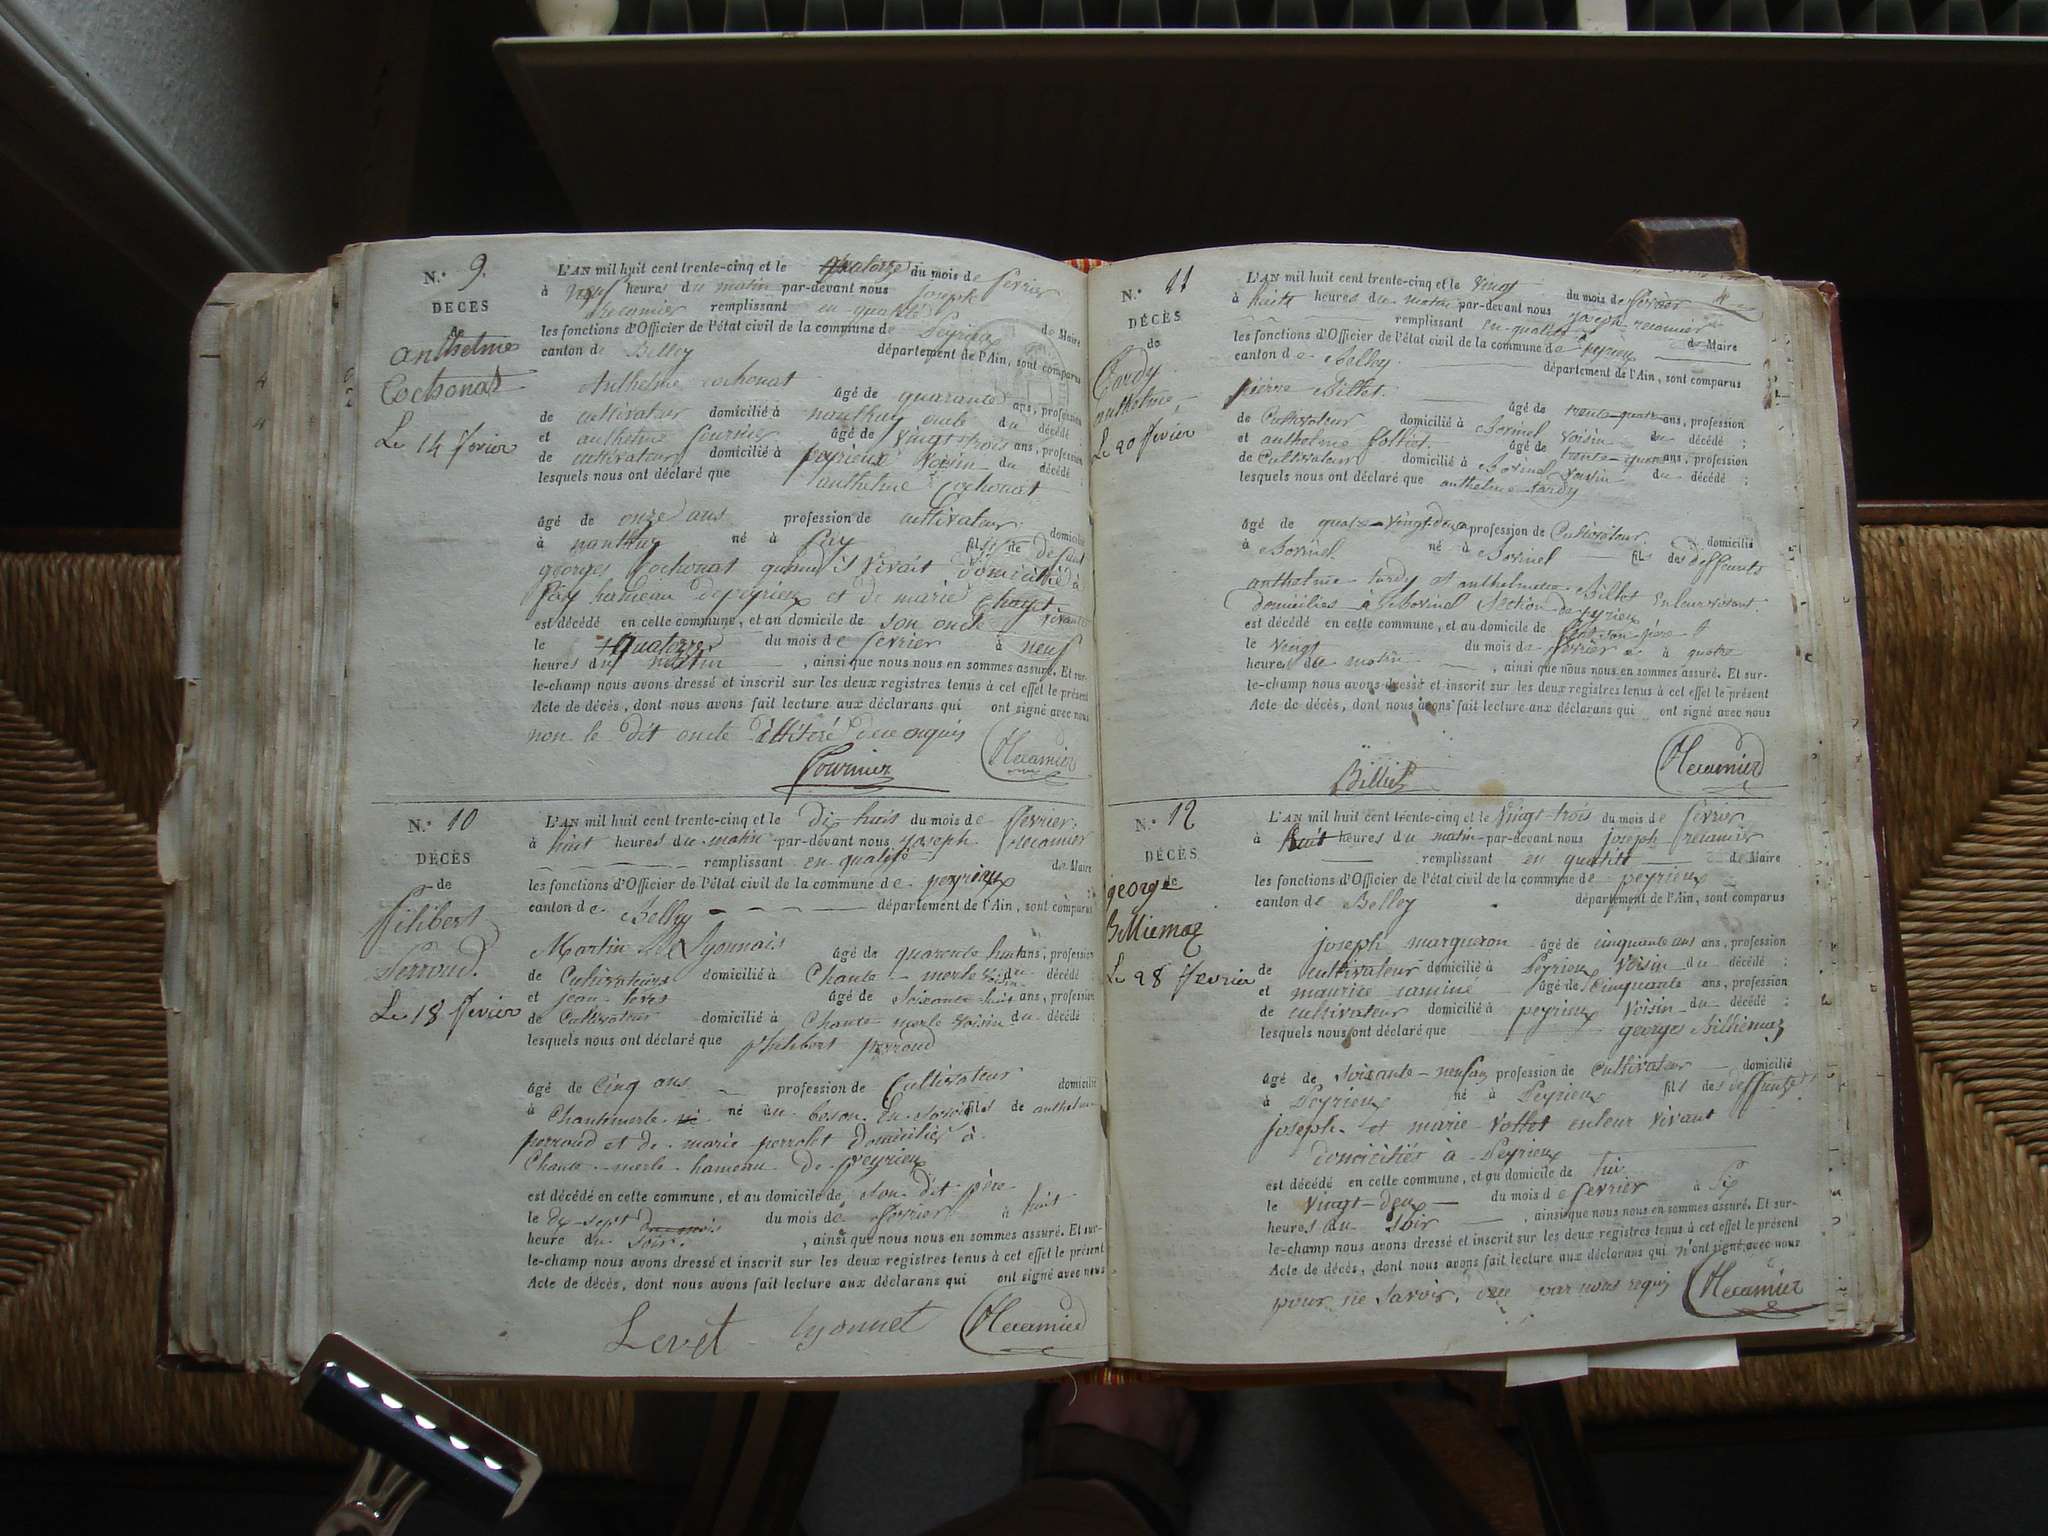 N.° 9.
DECES
de
anthelme
Cochonat
Le 14 fevrier
L'AN mil huit cent trente-cinq et le quatorze du mois de fevrier
à neuf heures du matin par-devant nous Joseph
Recamier remplissant en qualité de Maire
les fonctions d'Officier de l'état civil de la commune de Peyrieux
canton de Belley département de l'Ain, sont comparus
Anthelme cochonat âgé de quarante ans, profession
de cultivateur domicilié à nanthuy oncle du décédé ;
et anthelme fournier âgé de vingt-trois ans, profession
de cultivateur domicilié à peyrieux voisin du décédé ;
lesquels nous ont déclaré que anthelme Cochonat
âgé de onze ans profession de cultivateur domicilié
à nanthuy né à fay fils de défunt
georges Cochonat quand vivait domicilié à
fay hameau de peyrieux et de marie
est décédé en cette commune, et au domicile de son oncle
le quatorze du mois de fevrier à neuf
heures du matin , ainsi que nous nous en sommes assuré. Et sur-
le-champ nous avons dressé et inscrit sur les deux registres tenus à cet effet le présent
Acte de décès, dont nous avons fait lecture aux déclarans qui ont signé avec nous
non le dit oncle illitéré de ce enquis
fournier Recamier
N.° 10
DÉCÈS
de
filibert
Perroud.
Le 18 fevrier
L'AN mil huit cent trente-cinq et le dix-huit du mois de fevrier.
à huit heures du matin par-devant nous joseph recamier
remplissant en qualité de Maire
les fonctions d'Officier de l'état civil de la commune de peyrieux
canton de Belley département de l'Ain, sont comparus
Martin Lyonnais âgé de quarente huit ans, profession
de Cultivateurs domicilié à Chante-merle voisin du décédé ;
et jean levet âgé de soixante huit ans, profession
de Cultivateur domicilié à Chante-merle voisin du décédé ;
lesquels nous ont déclaré que philibert perroud
âgé de Cinq ans profession de Cultivateur domicilié
à Chantemerle né au fils de anthelme
perroud et de marie perrolet domiciliés à
Chante-merle hameau de peyrieux
est décédé en cette commune, et au domicile de son dit père
le dix-sept du mois de fevrier à huit
heure du soir , ainsi que nous nous en sommes assuré. Et sur-
le-champ nous avons dressé et inscrit sur les deux registres tenus à cet effet le présent
Acte de décès, dont nous avons fait lecture aux déclarans qui ont signé avec nous
Levet lyonnet Recamier
N.° 11
DÉCÈS
de
Tardy
anthelme
Le 20 fevrier
L'AN mil huit cent trente-cinq et le vingt du mois de fevrier
à huit heures du matin par-devant nous joseph recamier
remplissant en qualité de Maire
les fonctions d'Officier de l'état civil de la commune de peyrieux
canton de Belley département de l'Ain, sont comparus
pierre Billet. âgé de trente-quatre ans, profession
de Cultivateur domicilié à Borinel voisin du décédé ;
et anthelme âgé de trente-quatre ans, profession
de Cultivateur domicilié à Borinel voisin du décédé ;
lesquels nous ont déclaré que anthelme tardy
âgé de quatre-vingt-deux profession de Cultivateur domicilié
à Borinel né à Borinel fils des deffunts
anthelme tardy et anthelmette Billot En leur vivant
domicilies à Borinel Section de peyrieux
est décédé en cette commune, et au domicile de
le vingt du mois de fevrier à quatre
heures du matin , ainsi que nous nous en sommes assuré. Et sur-
le-champ nous avons dressé et inscrit sur les deux registres tenus à cet effet le présent
Acte de décès, dont nous avons fait lecture aux déclarans qui ont signé avec nous
Billiet Recamier
N.° 12
DÉCÈS
de
george
Billiemaz
Le 28 fevrier
L'AN mil huit cent trente-cinq et le vingt-trois du mois de fevrier
à huit heures du matin par-devant nous joseph recamier
remplissant en qualité de Maire
les fonctions d'Officier de l'état civil de la commune de peyrieux
canton de Belley département de l'Ain, sont comparus
joseph marguron âgé de cinquante ans ans, profession
de cultivateur domicilié à Peyrieux voisin du décédé ;
et maurice camine âgé de cinquante ans, profession
de cultivateur domicilié à peyrieux voisin du décédé ;
lesquels nous ont déclaré que georges Billiemaz
âgé de soixante-neuf ans profession de cultivateur domicilié
à Peyrieux né à Peyrieux fils des deffunts
joseph et marie Vottet en leur vivant
domiciliés à Peyrieux
est décédé en cette commune, et au domicile de lui
le vingt-deux du mois de fevrier à six
heures du soir , ainsi que nous nous en sommes assuré. Et sur-
le-champ nous avons dressé et inscrit sur les deux registres tenus à cet effet le présent
Acte de décès, dont nous avons fait lecture aux déclarans qui n'ont signé avec nous
pour ne savoir, de ce par nous requis Recamier